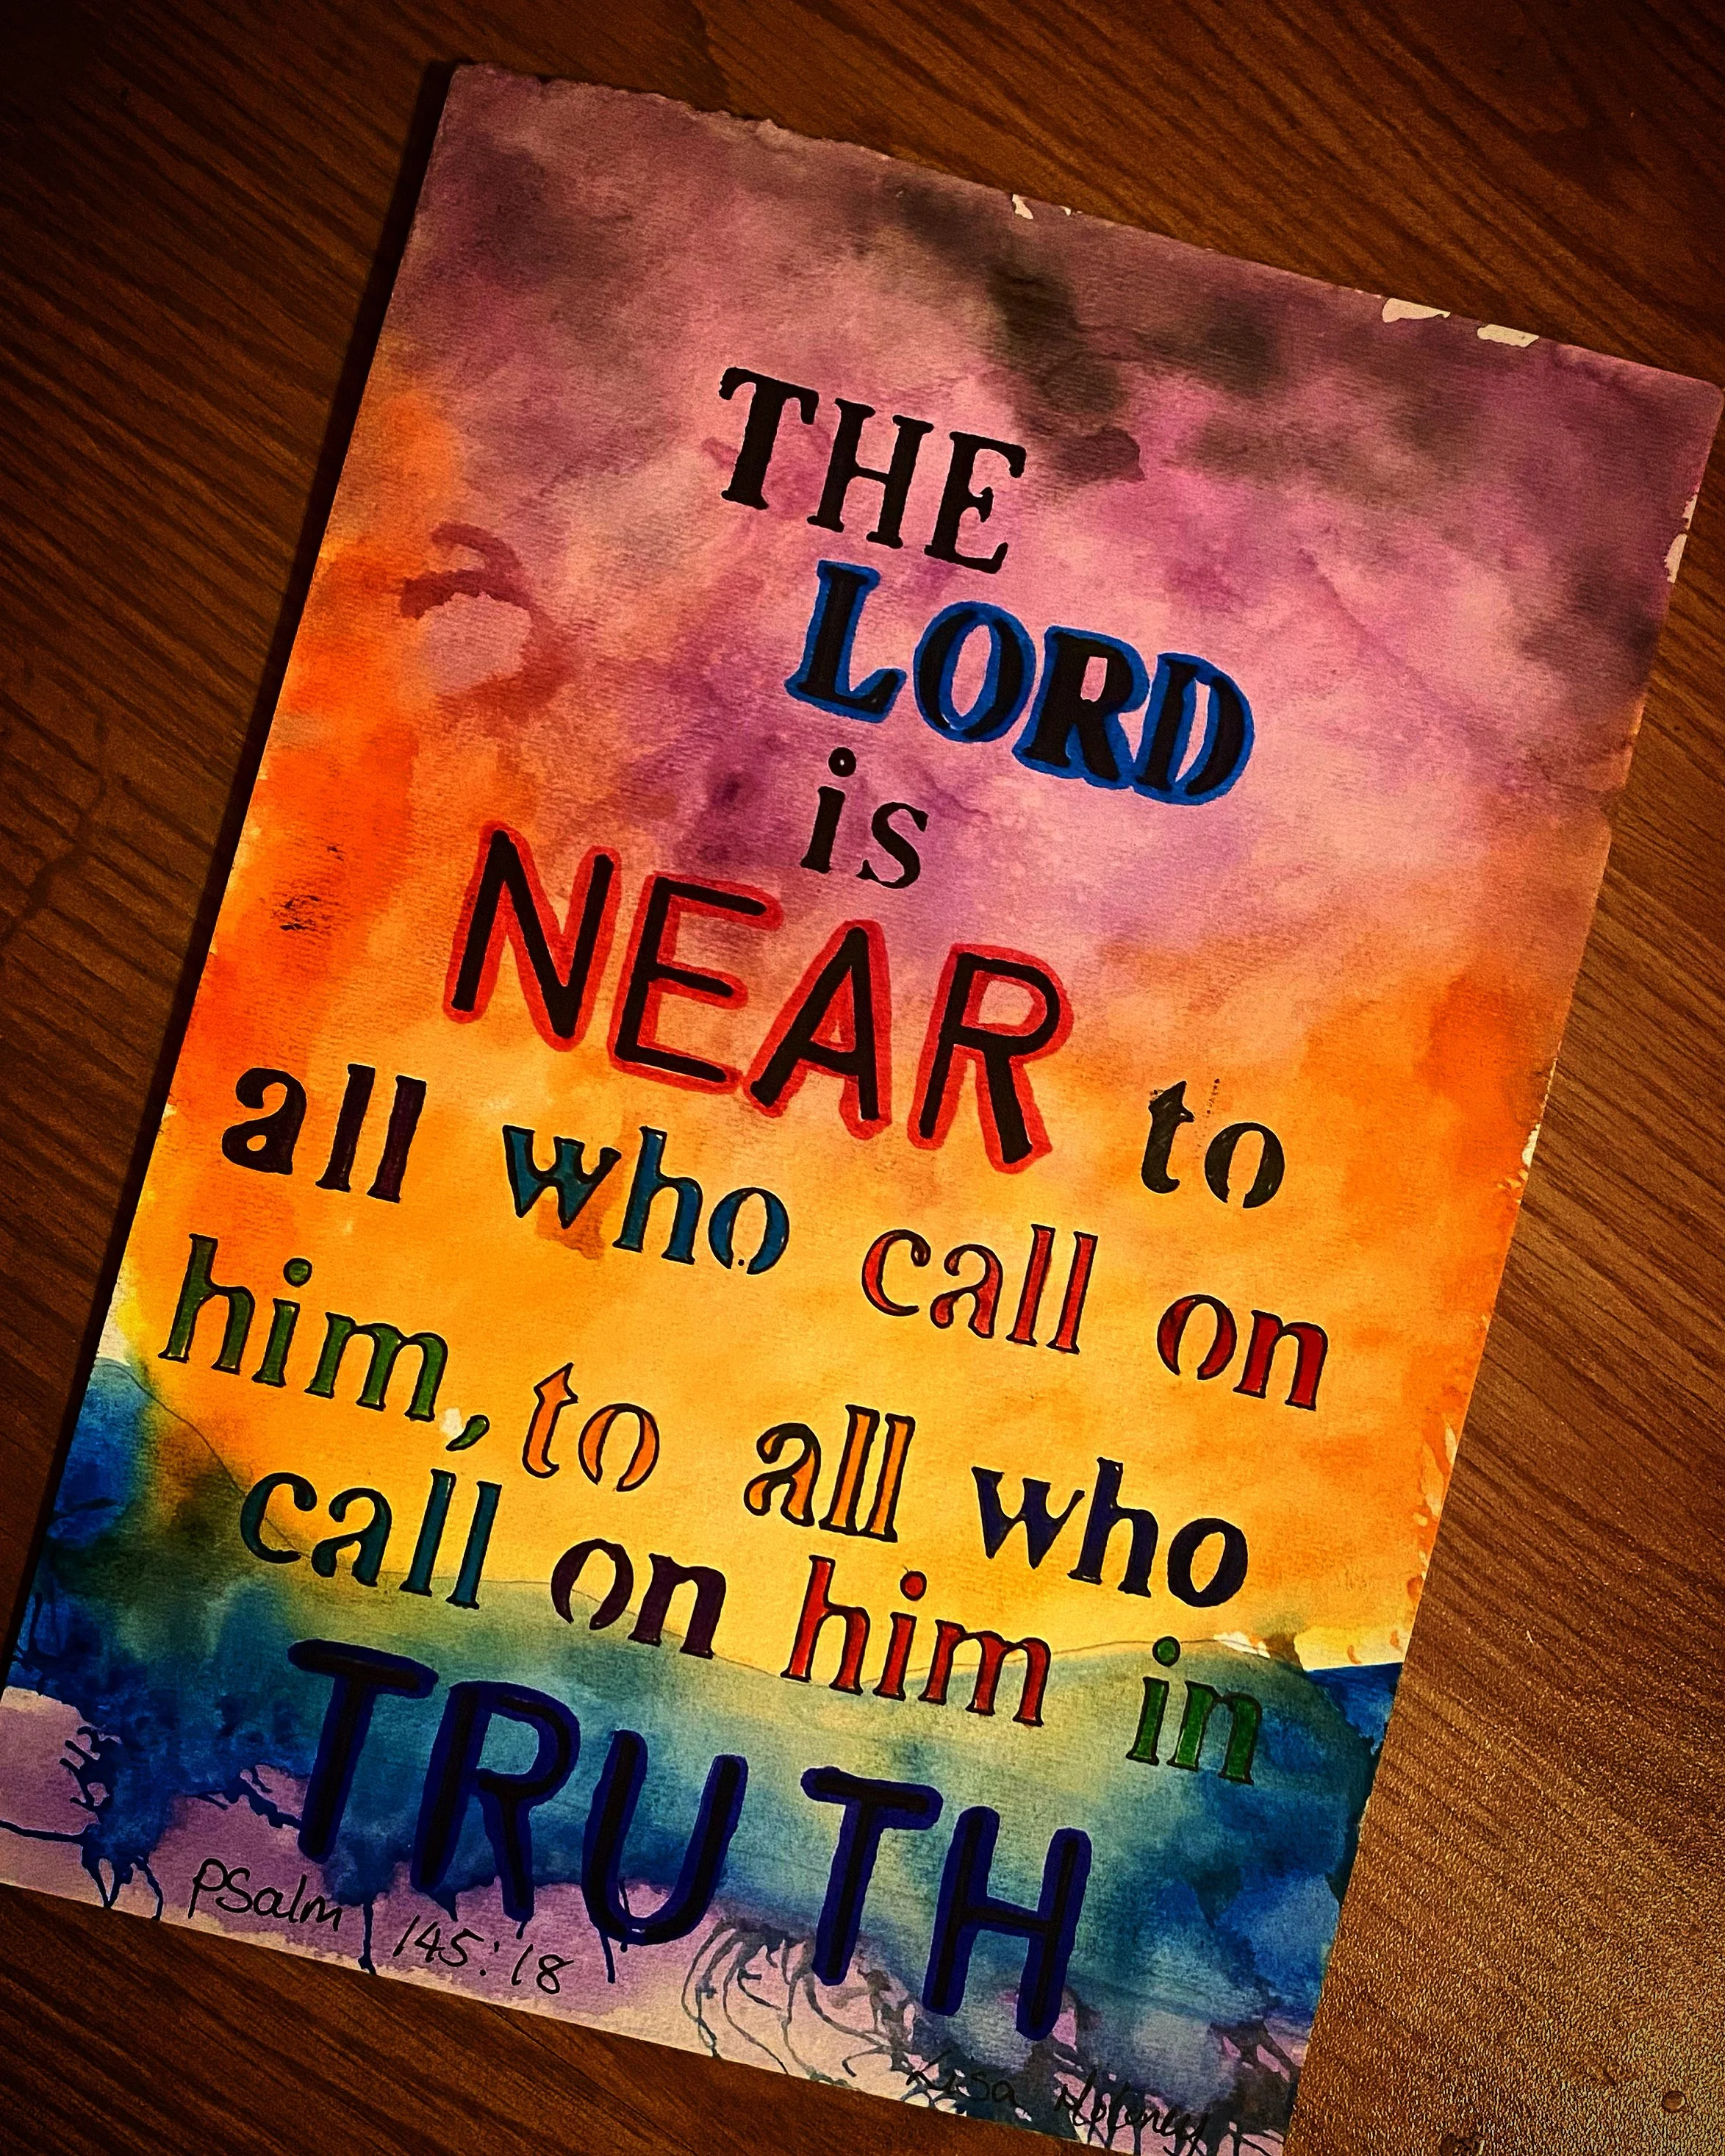 THE
LORD
is
NEAR to
all who call on
him, to all who
call on him in
TRUTH
PSalm 145:18
Lisa